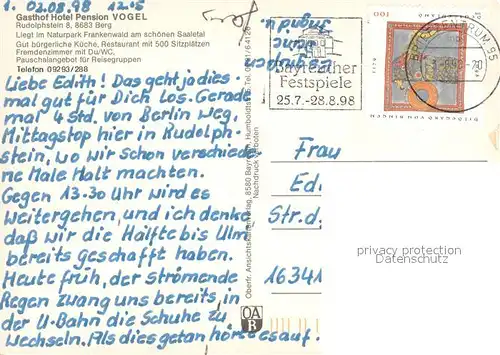 1. 02.08.98 12.5
Gasthof Hotel Pension VOGEL
Rudolphstein 8, 8683 Berg
Liegt im Naturpark Frankenwald am schönen Saaletal
Gut bürgerliche Küche, Restaurant mit 500 Sitzplätzen
Fremdenzimmer mit Du/WC,
Pauschalangebot für Reisegruppen
Telefon 09293/288
Liebe Edith! Das geht ja dies-
mal gut für Dich los. Gerade
mal 4 Std. von Berlin weg,
Mittagstop hier in Rudolph-
stein, wo wir schon verschiede-
ne Male Halt machten.
Gegen 13.30 Uhr wird es
weitergehen, und ich denke
daß wir die Hälfte bis Ulm
bereits geschafft haben.
Heute früh, der strömende
Regen zwang uns bereits, in
der U-Bahn die Schuhe zu
wechseln. Als dies getan hörte es auf.
Oberfr. Ansichtskartenverlag, 8580 Bayreuth, Humboldtstr.
Nachdruck verboten
OA
B
Bayreuther
Festspiele
25.7.-28.8.98
ZENTRUM 95
100
HILDEGARD VON BINGEN
Frau
Ed
Str. d.
16341
privacy protection
Datenschutz